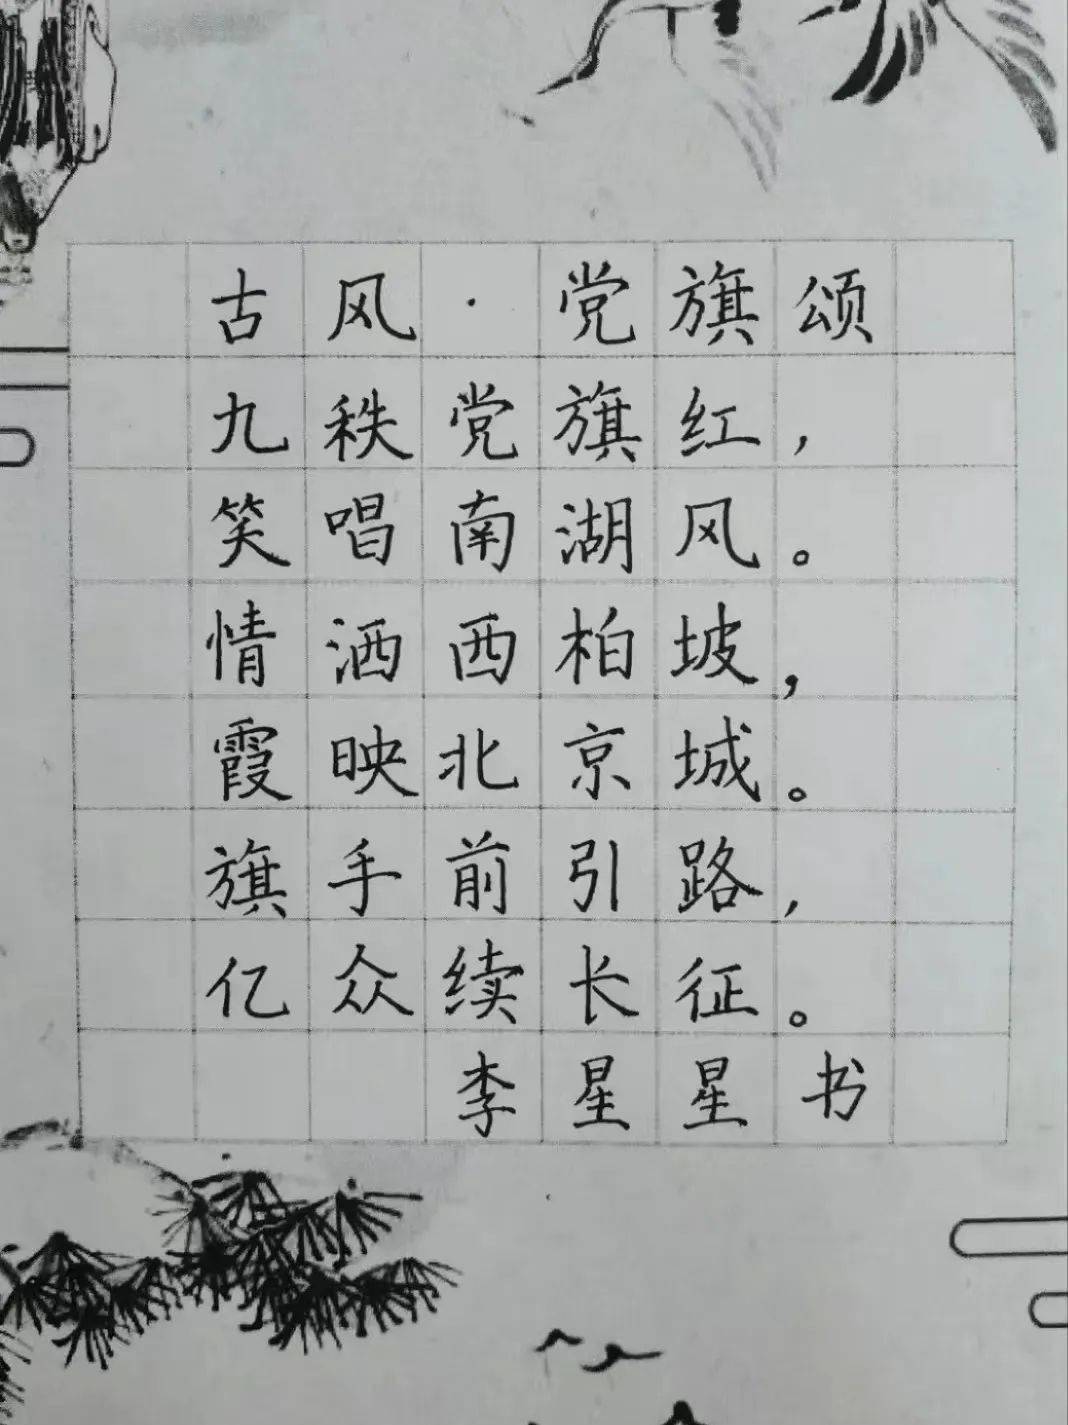 古风·党旗颂
九秩党旗红，
笑唱南湖风。
情洒西柏坡，
霞映北京城。
旗手前引路，
亿众续长征。
李星星书